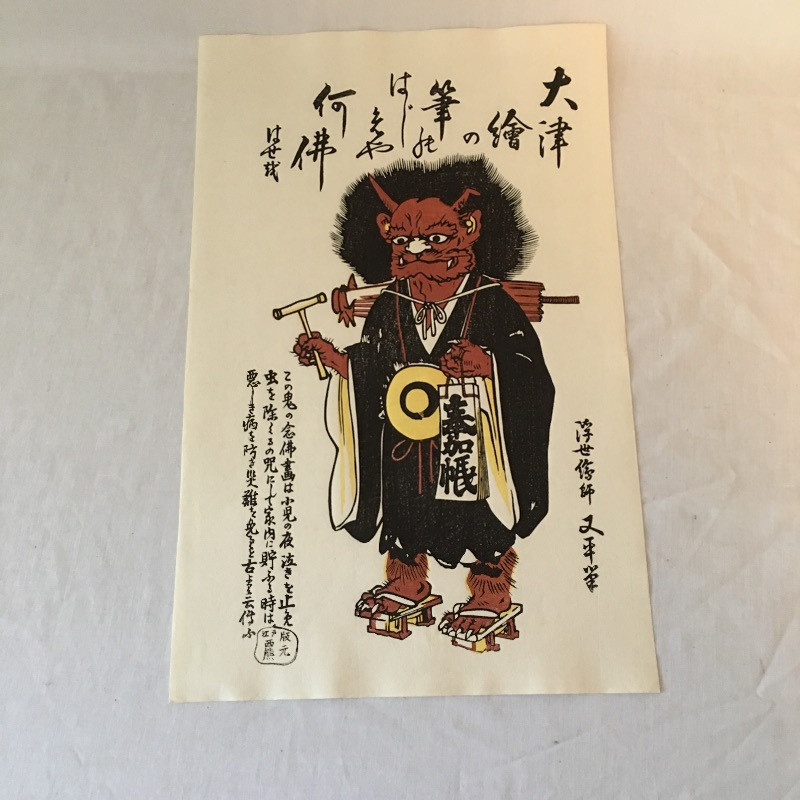 大津
繪の
筆の
はじめや
何佛
はせ越
浮世繪師 又平筆
奉加帳
この鬼の念佛畵は小児の夜泣きを止免
虫を除くるの咒にして家内に貯ふる時は
悪しき病を防き災難を免るゝ古より云傳ふ
版元
江戸
西熊